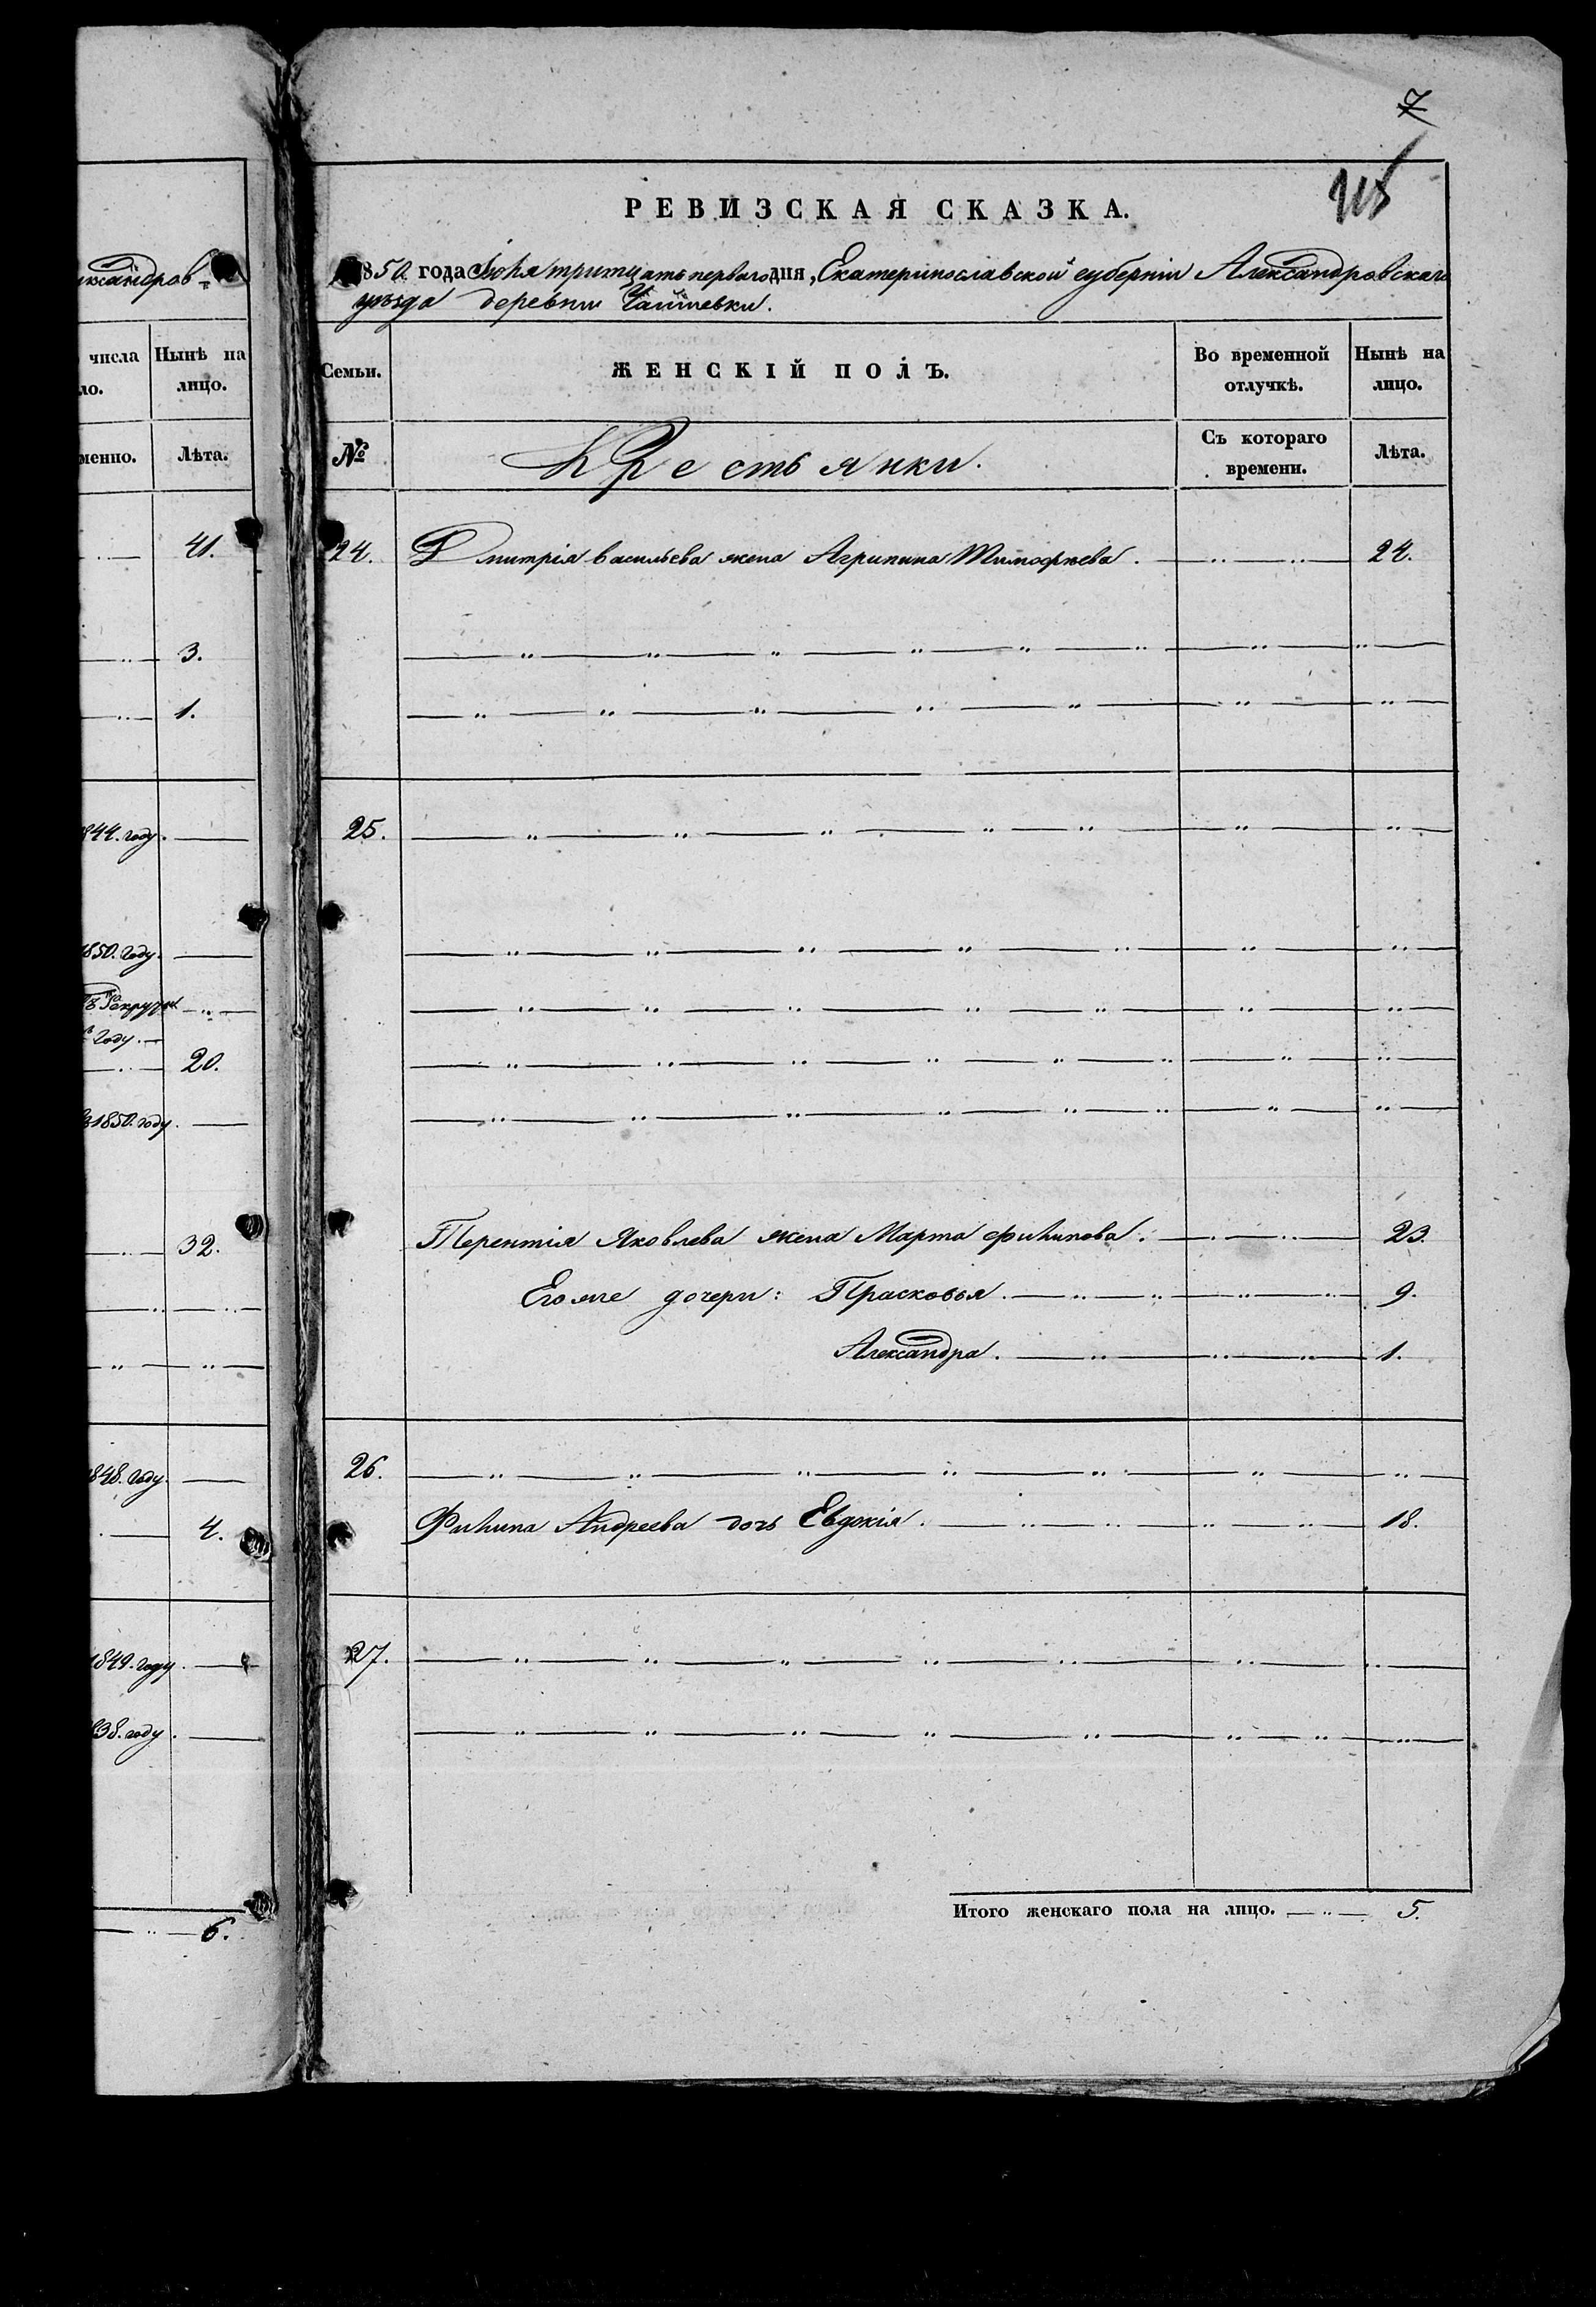 7
115
ксандров-
числа Нынѣ на
ло. лицо.
менно. Лѣта.
41.
3.
1.
844. году.
1850. году.
Рекруты
году.
20.
1850. году.
32.
1848. году.
4.
1849. году.
838. году.
6.
РЕВИЗСКАЯ СКАЗКА.
850. года Іюля тритцать перваго дня, Екатеринославской губерніи Александровскаго
уѣзда деревни
Семьи. ЖЕНСКІЙ ПОЛЪ. Во временной отлучкѣ. Нынѣ на лицо.
№ Крестьянки. Съ котораго времени. Лѣта.
24. Дмитрія Васильева жена Агрипина Тимофѣева. 24.
25.
Терентія Яковлева жена Марта Филипова. 23.
Его же дочери: Прасковья. 9.
Александра. 1.
26.
Филипа Андреева дочь Евдокія. 18.
27.
Итого женскаго пола на лицо. 5.